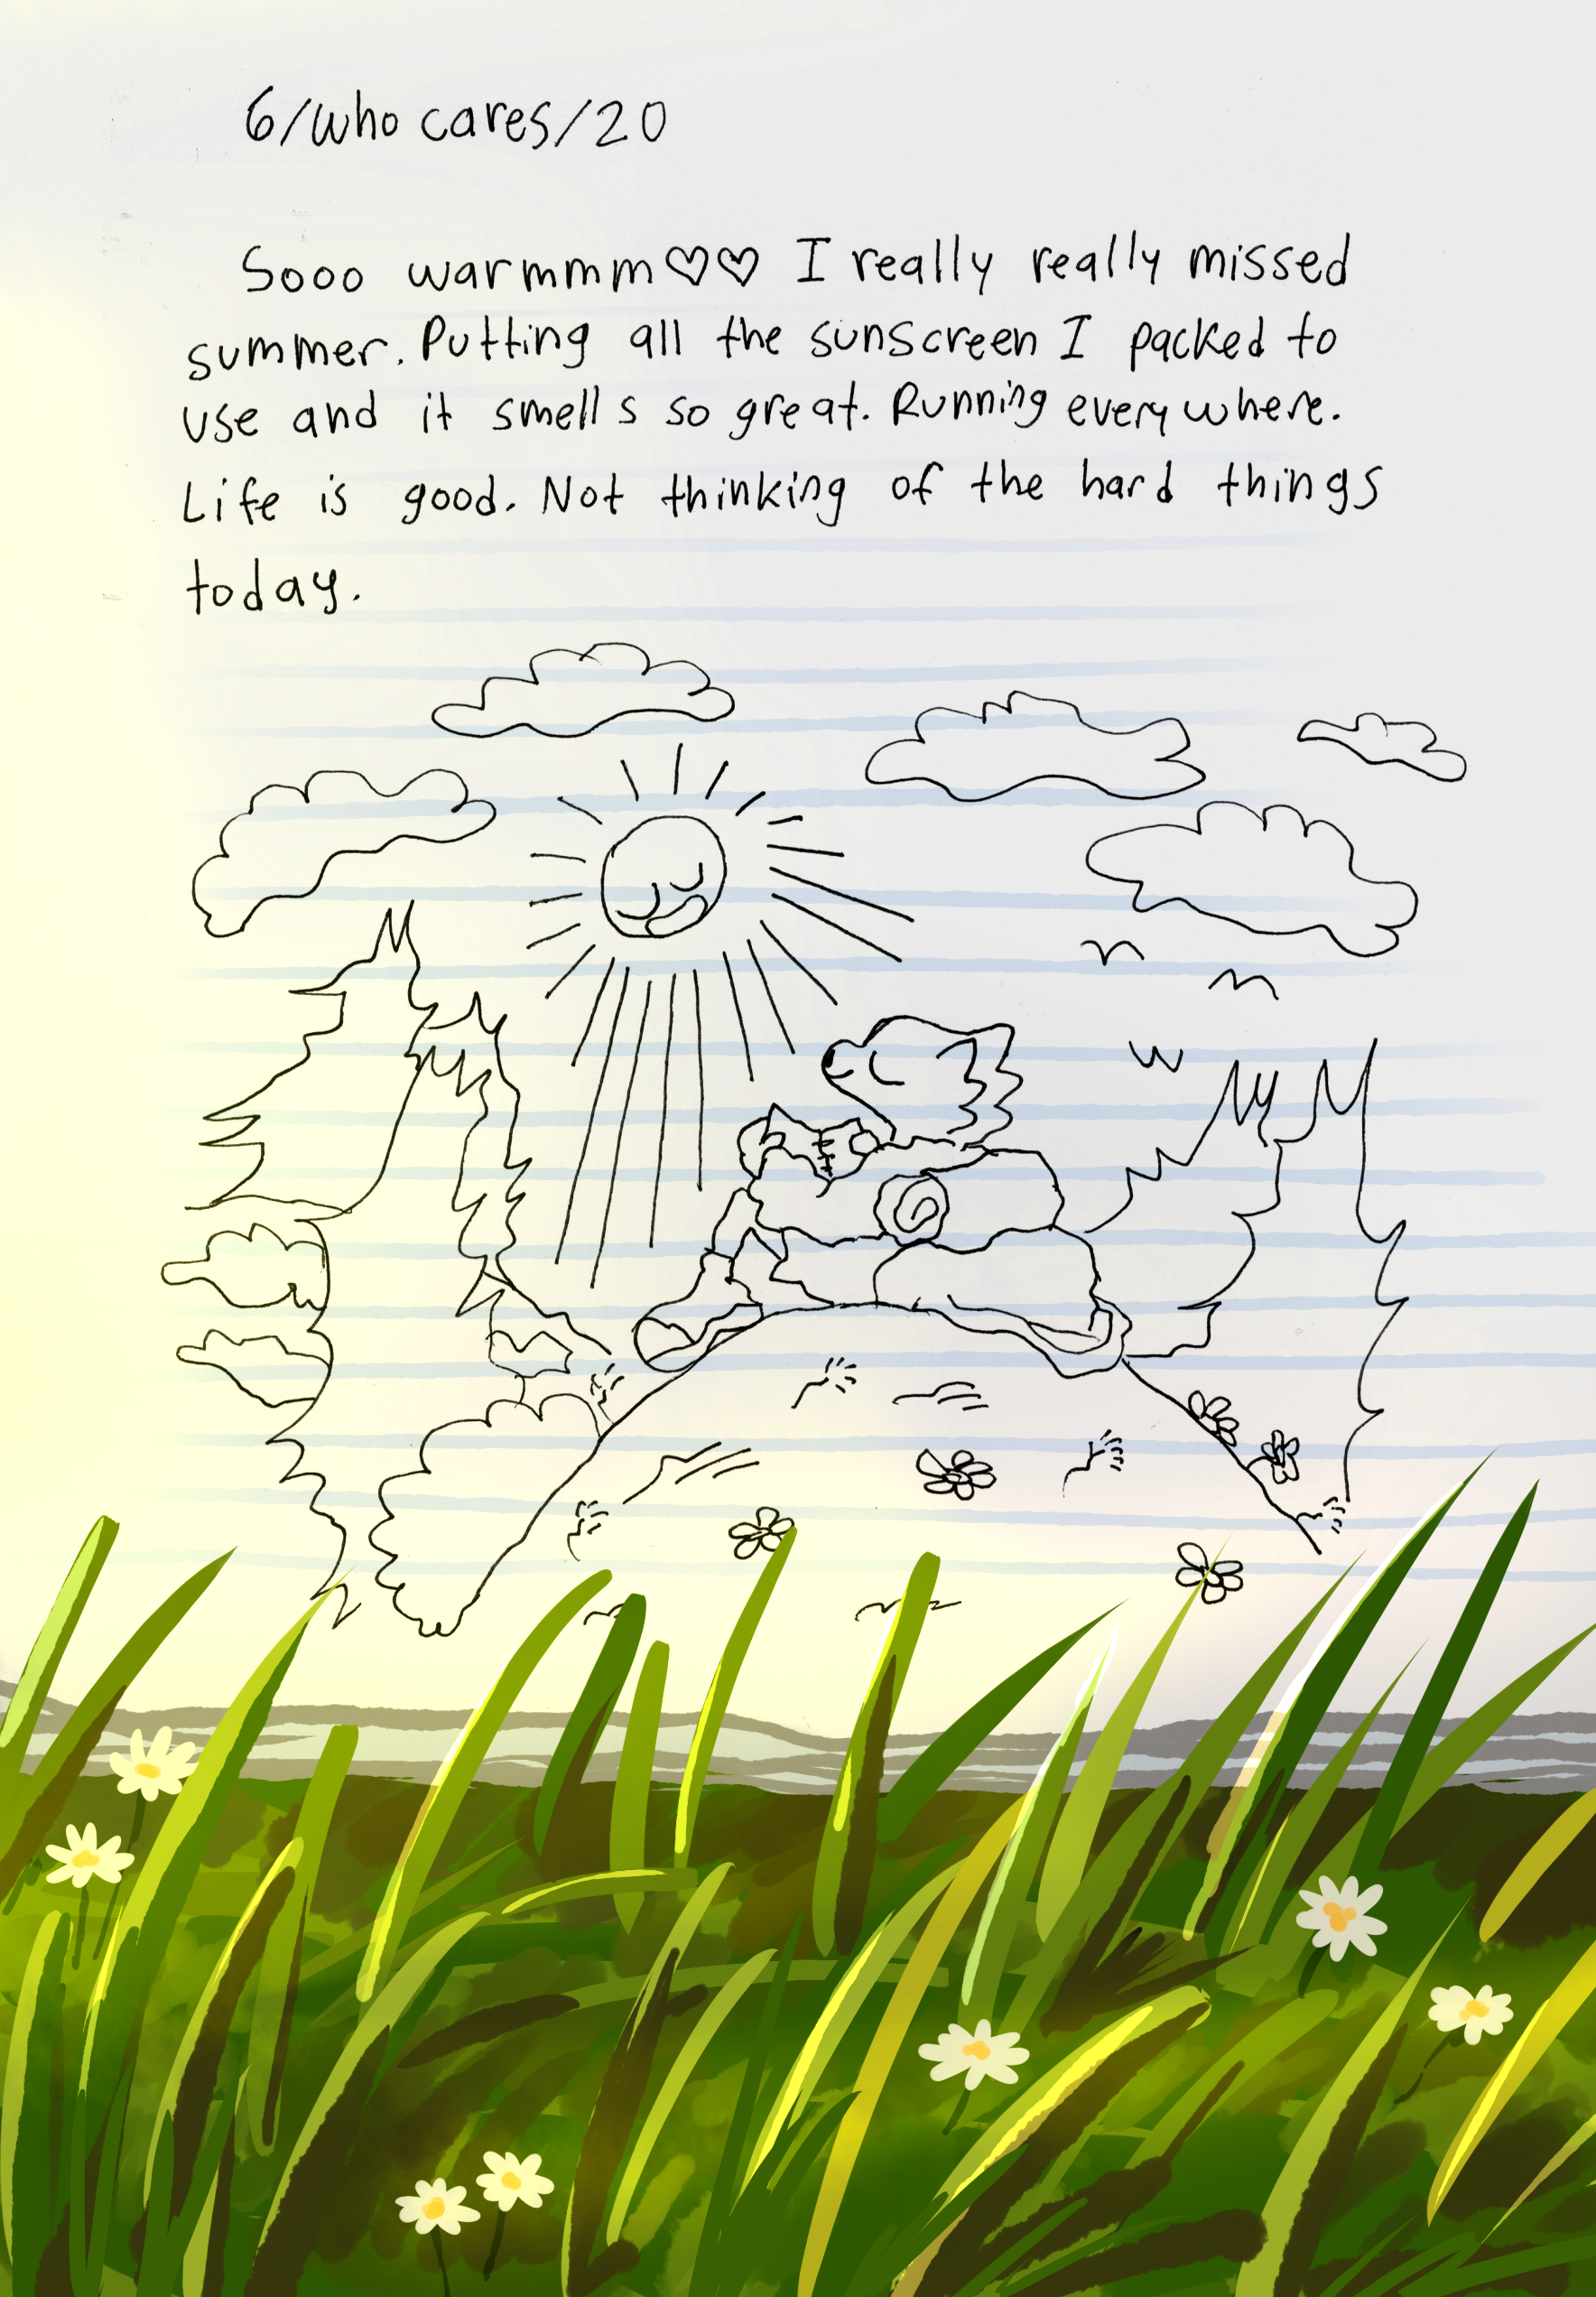 6/who cares/20
Sooo warmmm♡♡ I really really missed
summer. Putting all the sunscreen I packed to
use and it smells so great. Running everywhere.
Life is good. Not thinking of the hard things
today.